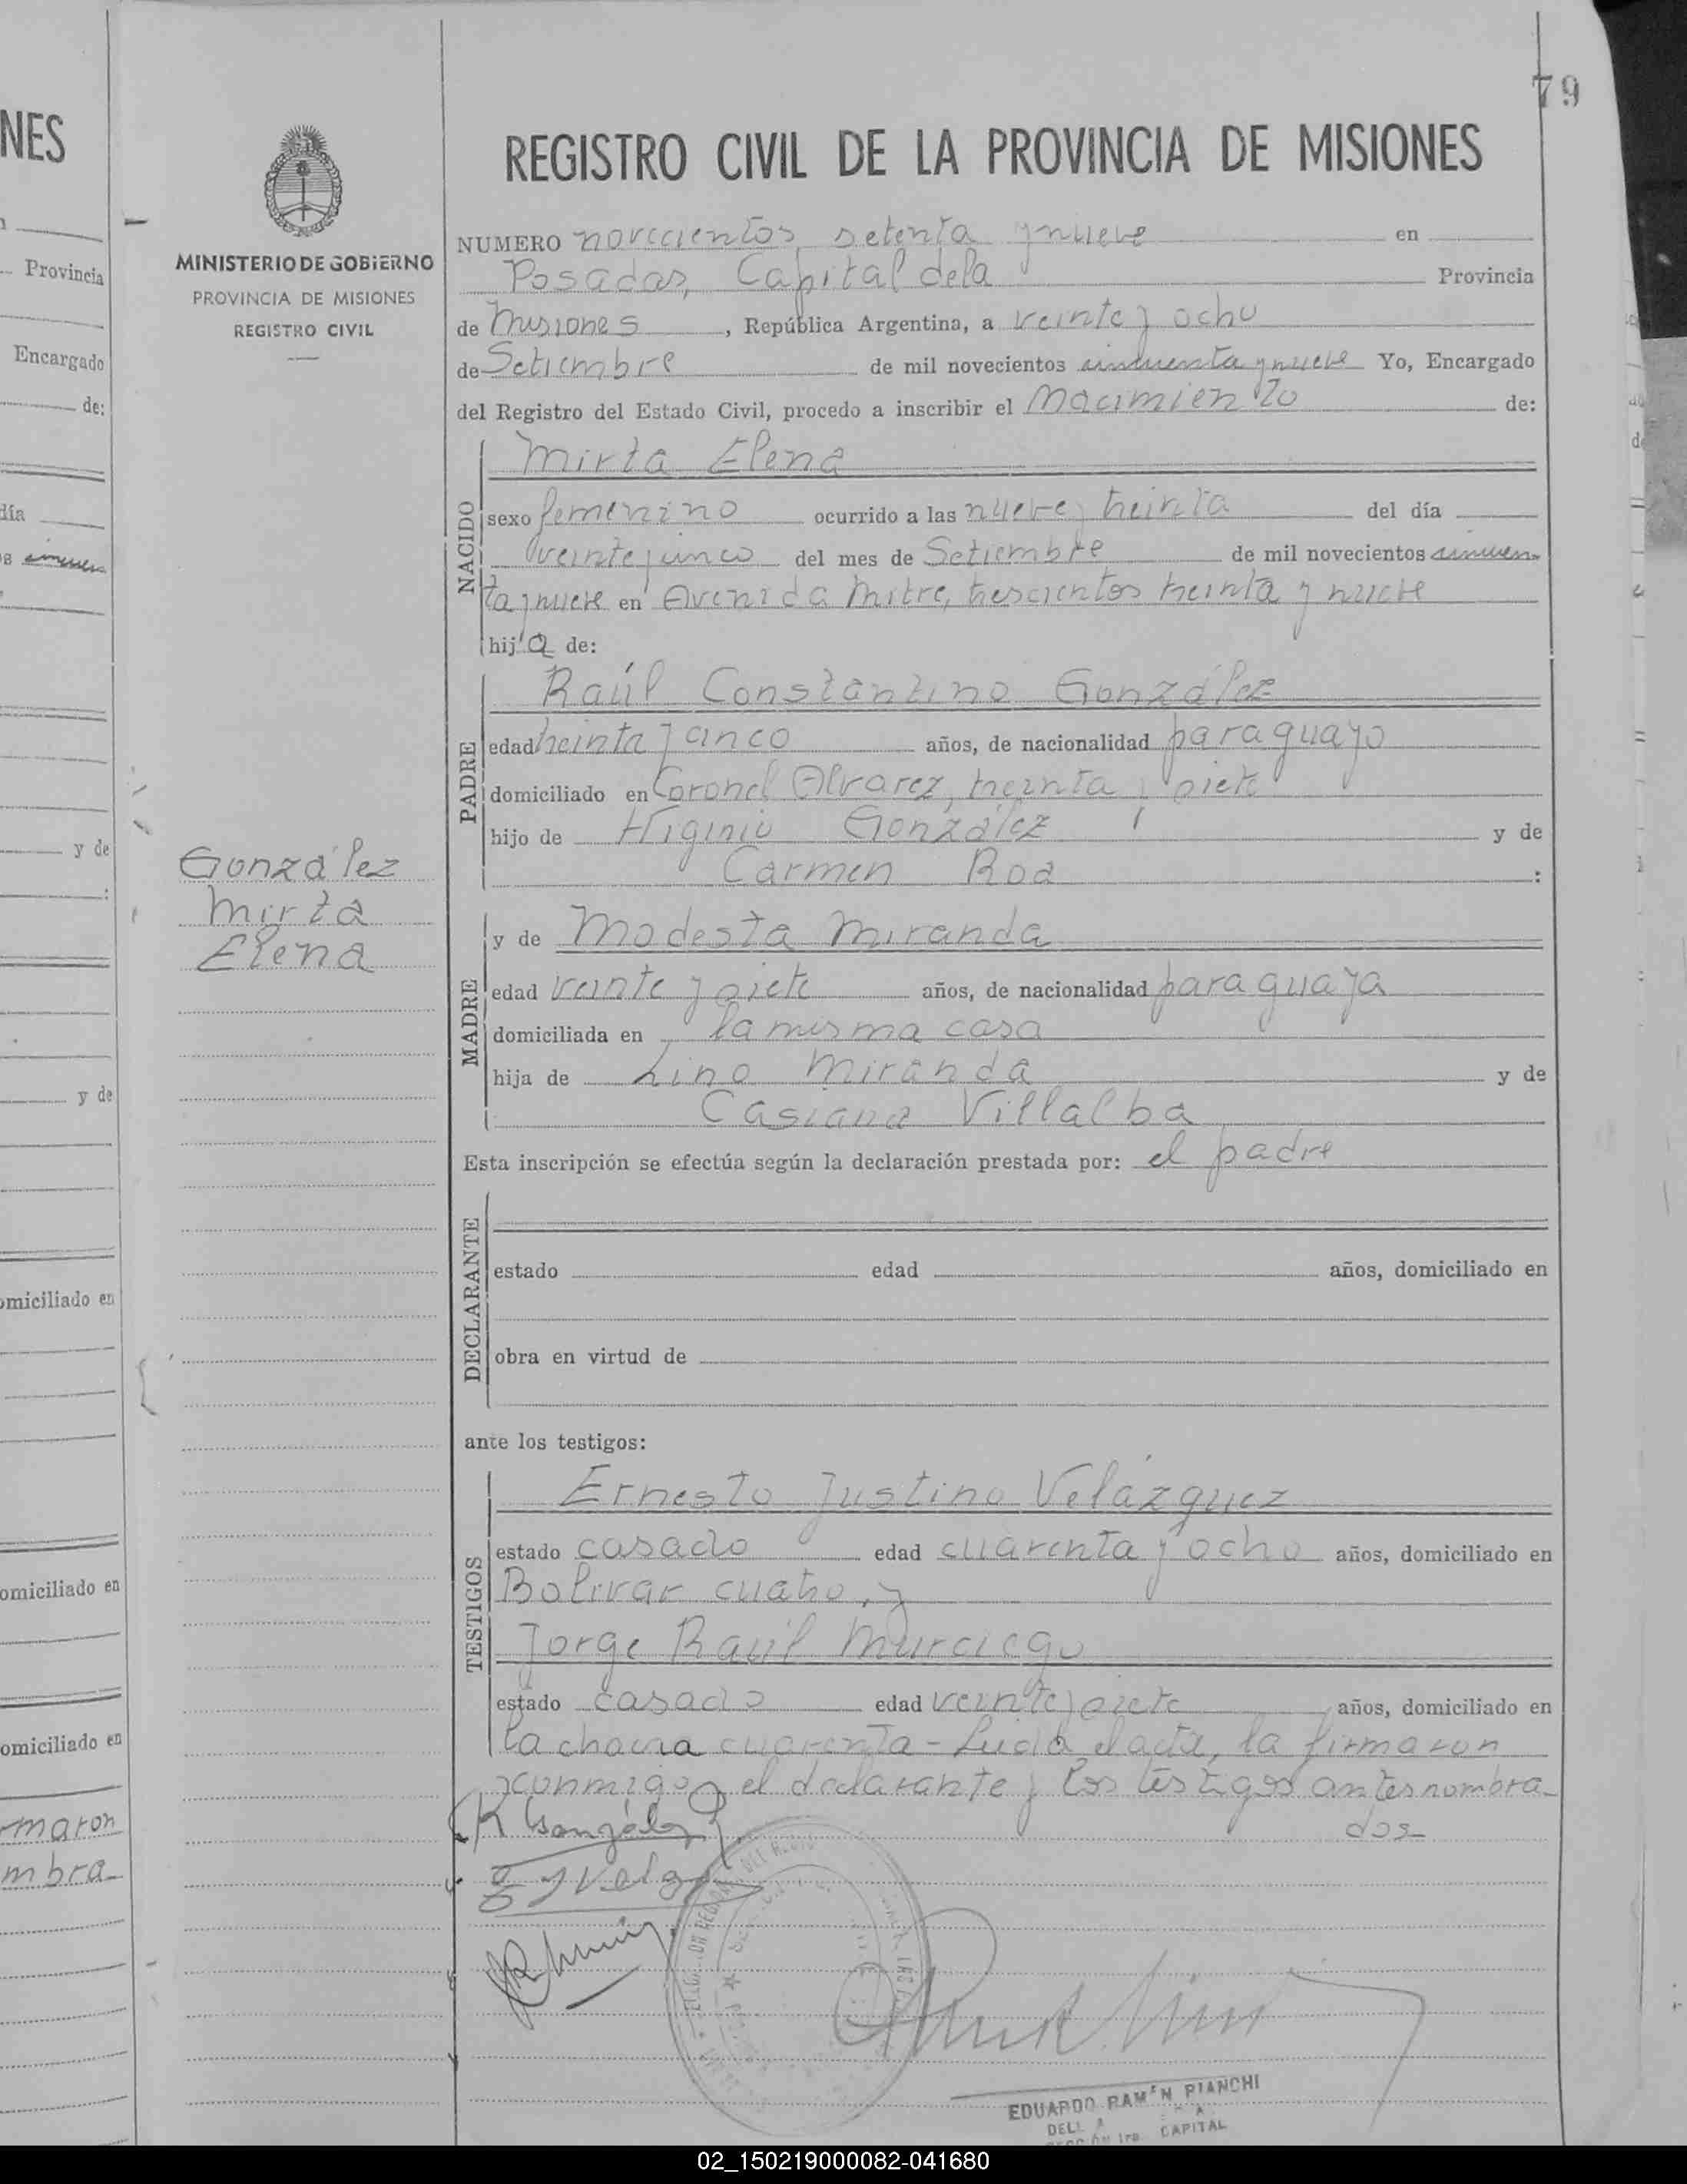 79
NES
Provincia
Encargado
de:
día
y de
y de
omiciliado en
omiciliado en
omiciliado en
rmaron
mbra-
MINISTERIO DE GOBIERNO
PROVINCIA DE MISIONES
REGISTRO CIVIL
González
Mirta
Elena
REGISTRO CIVIL DE LA PROVINCIA DE MISIONES
NUMERO novecientos setenta y nueve en
Posadas, Capital de la Provincia
de Misiones, República Argentina, a veinte y ocho
de Setiembre de mil novecientos cincuenta y nueve Yo, Encargado
del Registro del Estado Civil, procedo a inscribir el Nacimiento de:
NACIDO
Mirta Elena
sexo femenino ocurrido a las nueve y treinta del día
veinte y cinco del mes de Setiembre de mil novecientos cincuen-
ta y nueve en Avenida Mitre, trescientos treinta y nueve
hija de:
PADRE
Raúl Constantino González
edad treinta y cinco años, de nacionalidad paraguayo
domiciliado en Coronel Alvarez, treinta y siete
hijo de Higinio González y de
Carmen Roa :
MADRE
y de Modesta Miranda
edad veinte y siete años, de nacionalidad paraguaya
domiciliada en la misma casa
hija de Lino Miranda y de
Casiana Villalba
Esta inscripción se efectúa según la declaración prestada por: el padre
DECLARANTE
estado edad años, domiciliado en
obra en virtud de
ante los testigos:
TESTIGOS
Ernesto Justino Velázquez
estado casado edad cuarenta y ocho años, domiciliado en
Bolivar cuatro, y
Jorge Raúl Murciego
estado casado edad veinte y siete años, domiciliado en
la chacra cuarenta - Leida el acta, la firmaron
conmigo, el declarante y los testigos antes nombra-
dos-
R González
EJVelaz
EDUARDO RAMÓN BIANCHI
CAPITAL
02_150219000082-041680